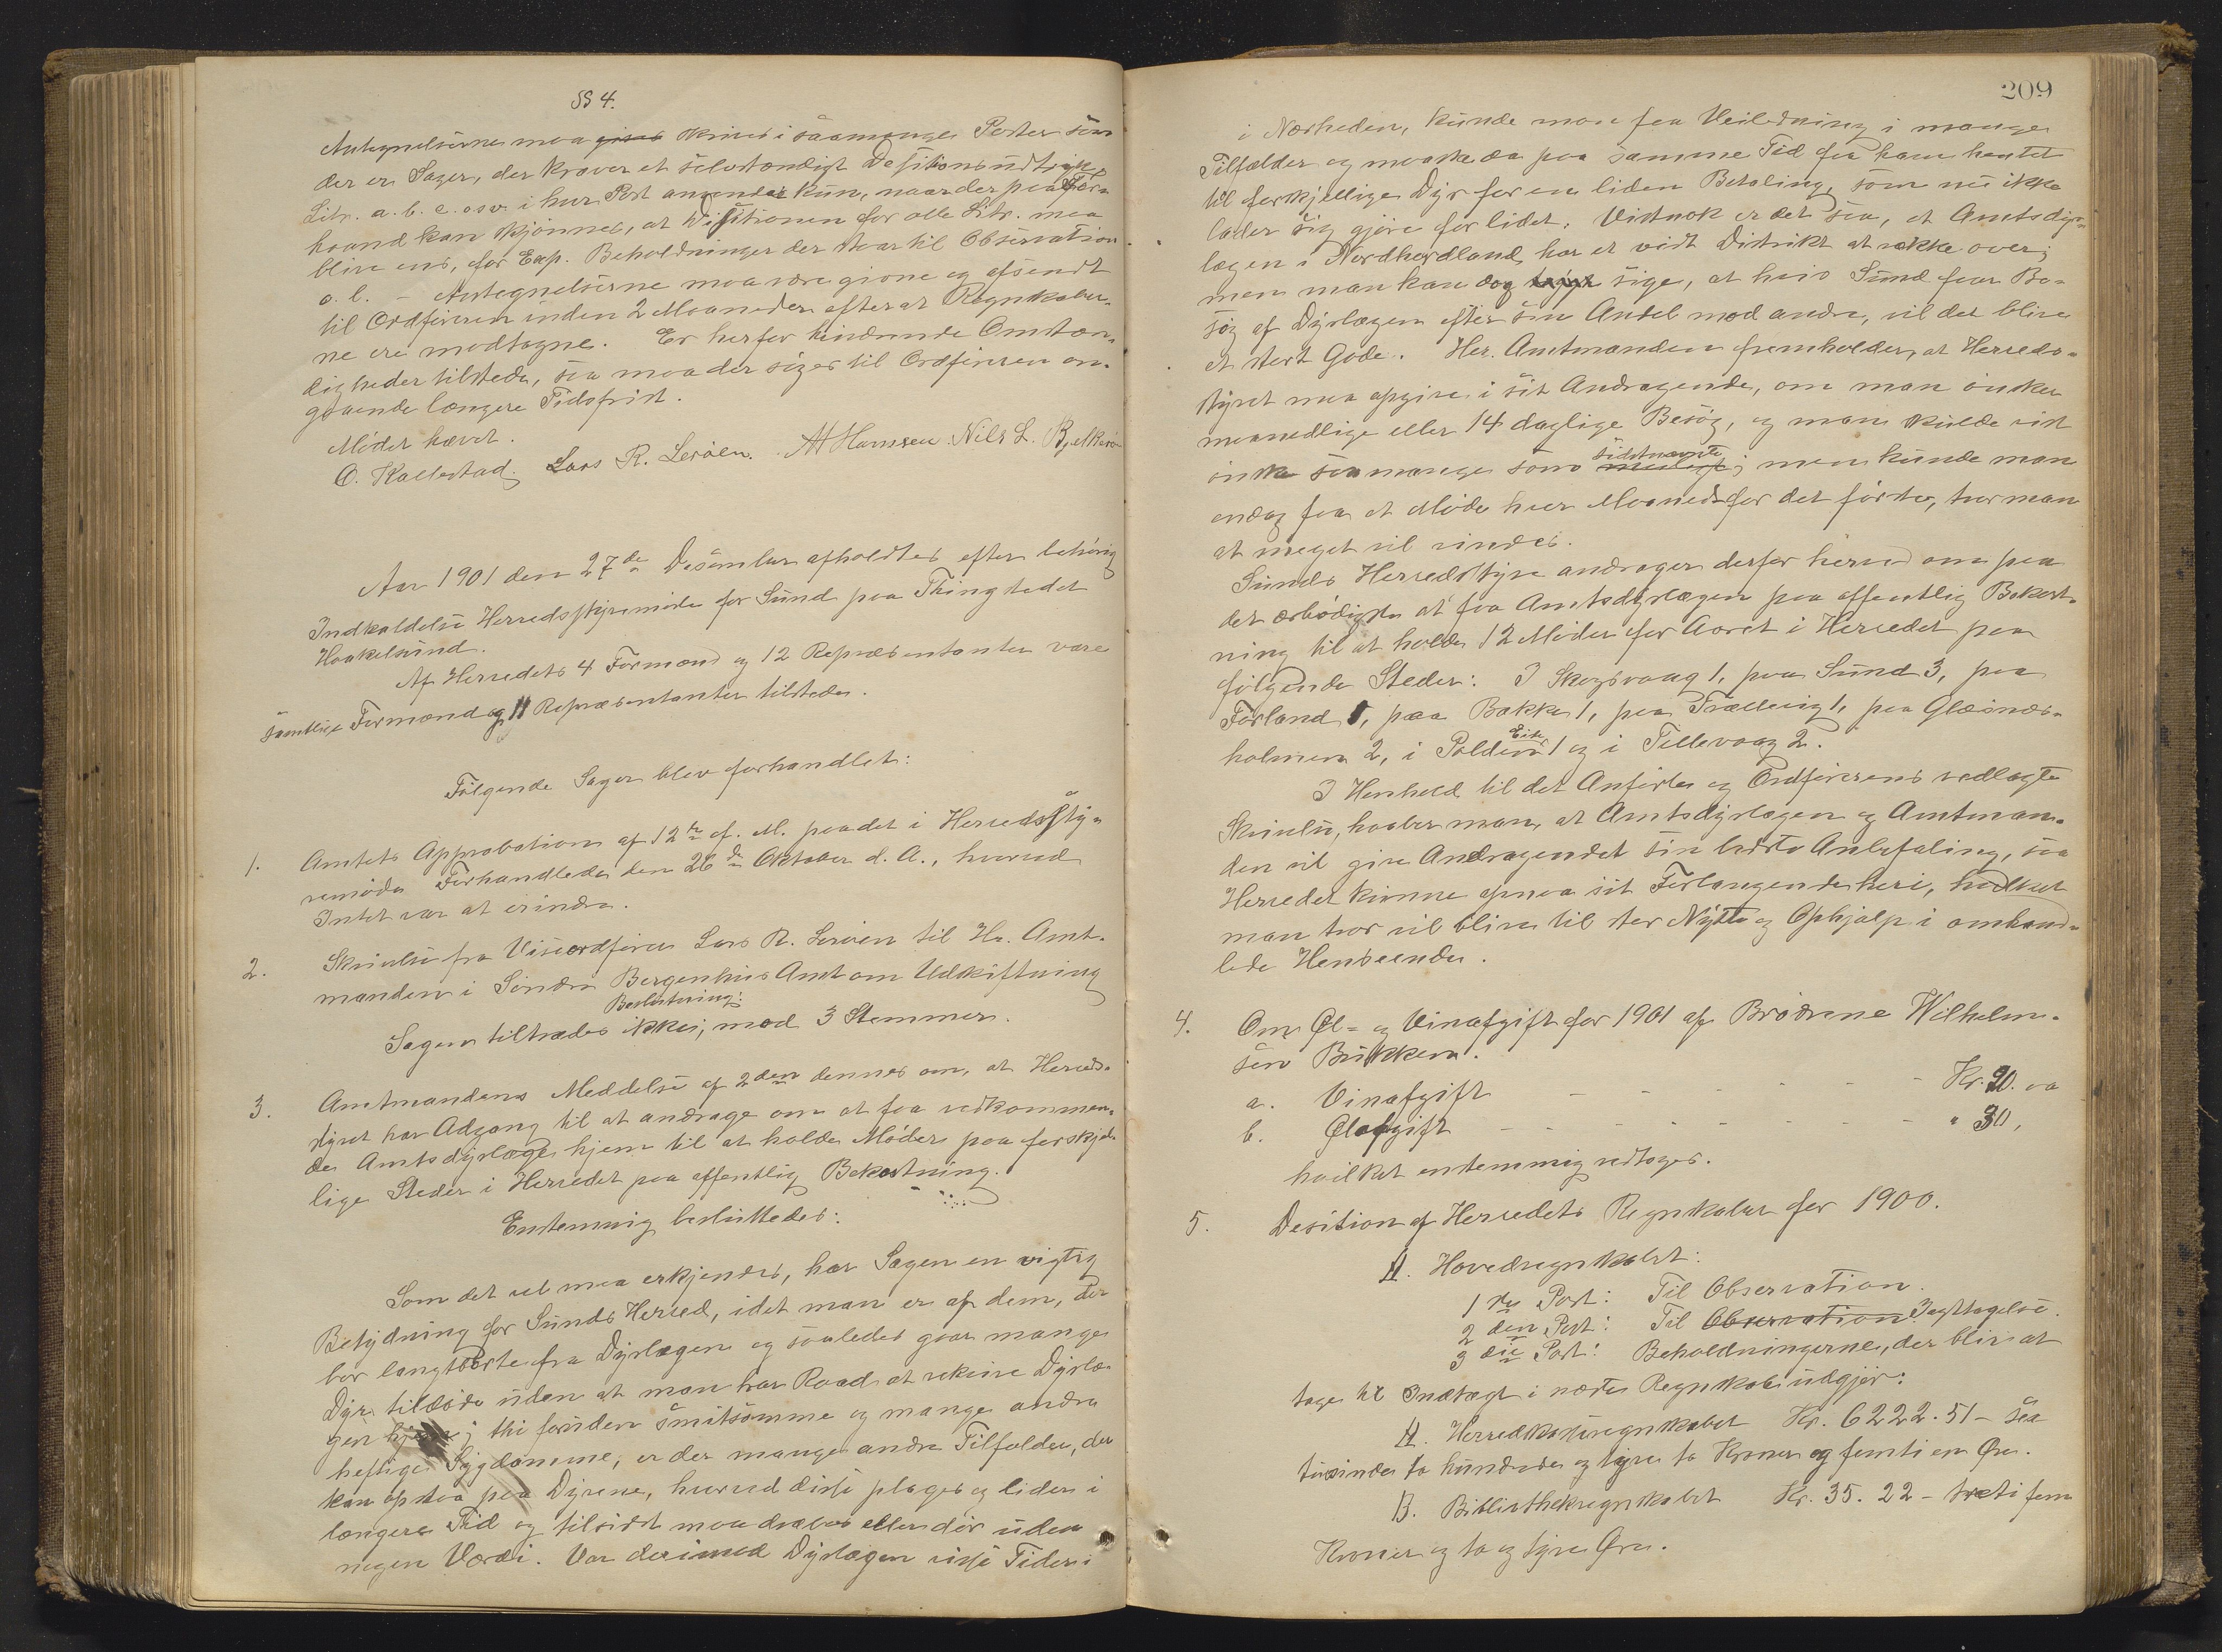 §§ 4.
Antegnelserne maa gives skrives i saamange Poster som
der er Sager, der kræver et selvstændigt Desitionsudtryk
Litr. a. b. c. osv. i hver Post anvendes kun, naar der paa For-
haand kan skjønnes, at Desitionen for alle Litr. maa
blive ens, for Exp. Beholdninger der staar til Observation
o. l. – Antegnelserne maa være givne og afsendt
til Ordføreren inden 2 Maaneder efterat Regnskaber-
ne ere modtagne. Er herfor hindrende Omstæn-
digheder tilstede, saa maa der siges til Ordføreren an-
gaaende længere Tidsfrist.
Mødet hævet.
O. Kallestad. Lars R. Lerøen. M Hansen. Nils L. Bjelkarøe
Aar 1901 den 27de Desember afholdtes efter behørig
Indkaldelse Herredsstyremøde for Sund paa Thingstedet
Haakelsund.
Af Herredets 4 Formænd og 12 Repræsentanter vare
samtlige Formænd og 11 Repræsentanter tilstede.
Følgende Sager blev forhandlet:
1. Amtets Approbation af 12te f. M. paa det i Herredssty-
remøde Forhandlede den 26de Oktober d. A., hvorved
Intet var at erindre.
2. Skrivelse fra Viseordfører Lars R. Lerøen til Hr. Amt-
manden i Søndre Bergenhus Amt om Udskiftning
Beslutning:
Sagen tiltrædes ikke, mod 3 Stemmer.
3. Amtmandens Meddelse af 2den dennes om, at Herreds-
styret har Adgang til at andrage om at faa vedkommen-
de Amtsdyrlæge hjem til at holde Møder paa forskjel-
lige Steder i Herredet paa offentlig Bekostning.
Enstemmig besluttedes:
Som det vel maa erkjendes, har Sagen en vigtig
Betydning for Sunds Herred, idet man er af dem, der
bor langt borte fra Dyrlægen og saaledes gaar mange
Dyr tildøde uden at man har Raad at rekvire Dyrlæ-
gen hjem; thi foruden smitsomme og mange andre
heftige Sygdomme, er der mange andre Tilfælder, der
kan opstaa paa Dyrene, hvorved disse plages og lider i
længere Tid og tilsidst maa dræbes eller dør uden
nogen Værdi. Var derimod Dyrlægen visse Tider i
209
i Nærheden, kunde man faa Veiledning i mange
Tilfælder og maaske da paa samme Tid faa ham hentet
til forskjellige Dyr for en liden Betaling, som nu ikke
lader sig gjøre for lidet. Vistnok er det saa, at Amtsdyr-
lægen i Nordhordland har et vidt Distrikt at række over;
men man kan dog sige, at hvis Sund faar Be-
søg af Dyrlægen efter sin Andel mod andre, vil det blive
et stort Gode. Her. Amtmanden fremholder, at Herreds-
styret maa opgive i sit Andragende, om man ønsker
maanedlige eller 14 daglige Besøg, og man skulde vist
sidstnævnte
ønske saa mange som muligt; men kunde man
endog faa et Møde hver Maaned for det første, tror man
at meget vil vindes.
Sunds Herredsstyre andrager derfor herved om paa
det ærbødigste at faa Amtsdyrlægen paa offentlig Bekost-
ning til at holde 12 Møder for Aaret i Herredet paa
følgende Steder: I Skogsvaag 1, paa Sund 3, paa
Førland 1, paa Bakke 1, paa Trællevig 1, paa Glæsnæs-
holmen 2, i Polden 1 og i Tellevaag 2.
I Henhold til det Anførte og Ordførerens vedlagte
Skrivelse, haaber man, at Amtsdyrlægen og Amtman-
den vil give Andragendet sin bedste Anbefaling, saa
Herredet kunne opnaa sit Forlangende heri, hvilket
man tror vil blive til stor Nytte og Ophjælp i omhand-
lede Henseende.
4. Om Øl- og Vinafgift for 1901 af Brødrene Wilhelm-
sen Bukken.
a. Vinafgift – – – – – – Kr. 90. oo
b. Ølafgift – – – – – – – " 30,
hvilket enstemmig vedtoges.
5. Desition af Herredets Regnskaber for 1900.
A. Hovedregnskabet:
1ste Post: Til Observation.
2den Post: Til Observation Iagttagelse.
3die Post: Beholdningerne, der blir at
tage til Indtægt i næste Regnskab udgjør:
A. Herredkasseregnskabet Kr. 6222.51 – sex
tusinde to hundrede og tyve to Kroner og femti en Øre.
B. Bibliothekregnskabet Kr. 35. 22 – tretifem
Kroner og to og tyve Øre.